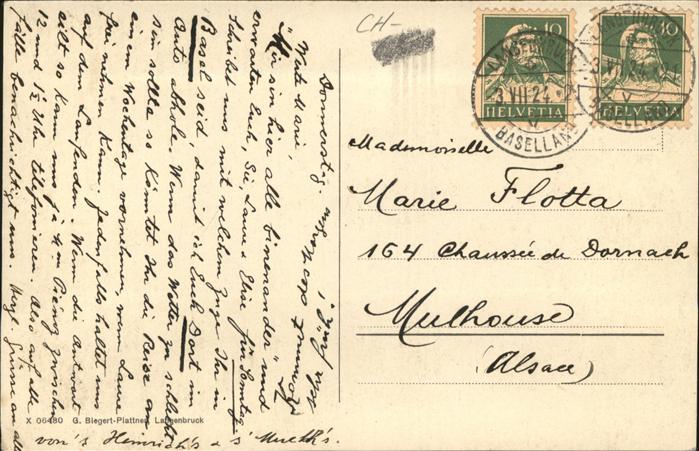 Donnerstag.
Werte Marie,
"Mir sin hier alle binenander" und
erwarten Euch, Sie, Laure & Elise für Sonntag
Schreibt uns mit welchem Zuge Ihr in
Basel seid, damit ich Euch dort im
Auto abhole. Wenn das Wetter zu schlecht
sein sollte so könntet Ihr die Reise an
ein em Wochentage vornehmen, wenn Laure
frei nehmen kann. Jedenfalls haltet uns
auf dem Laufenden. Wenn die Antwort
eilt so kann uns ja Hr. zwischen
12 und 1½ Uhr telefonieren. Also auf alle
Fälle benachrichtigt uns Grüsse an alle
von's Heinrich's & s'
X 06480 G. Biegert-Plattner, Langenbruck
CH-
10
HELVETIA
10
HELVETIA
LANGENBRUCK
3.VII.24
BASELLAND
Mademoiselle
Marie Flotta
164 Chaussée de Dornach
Mulhouse
(Alsace)